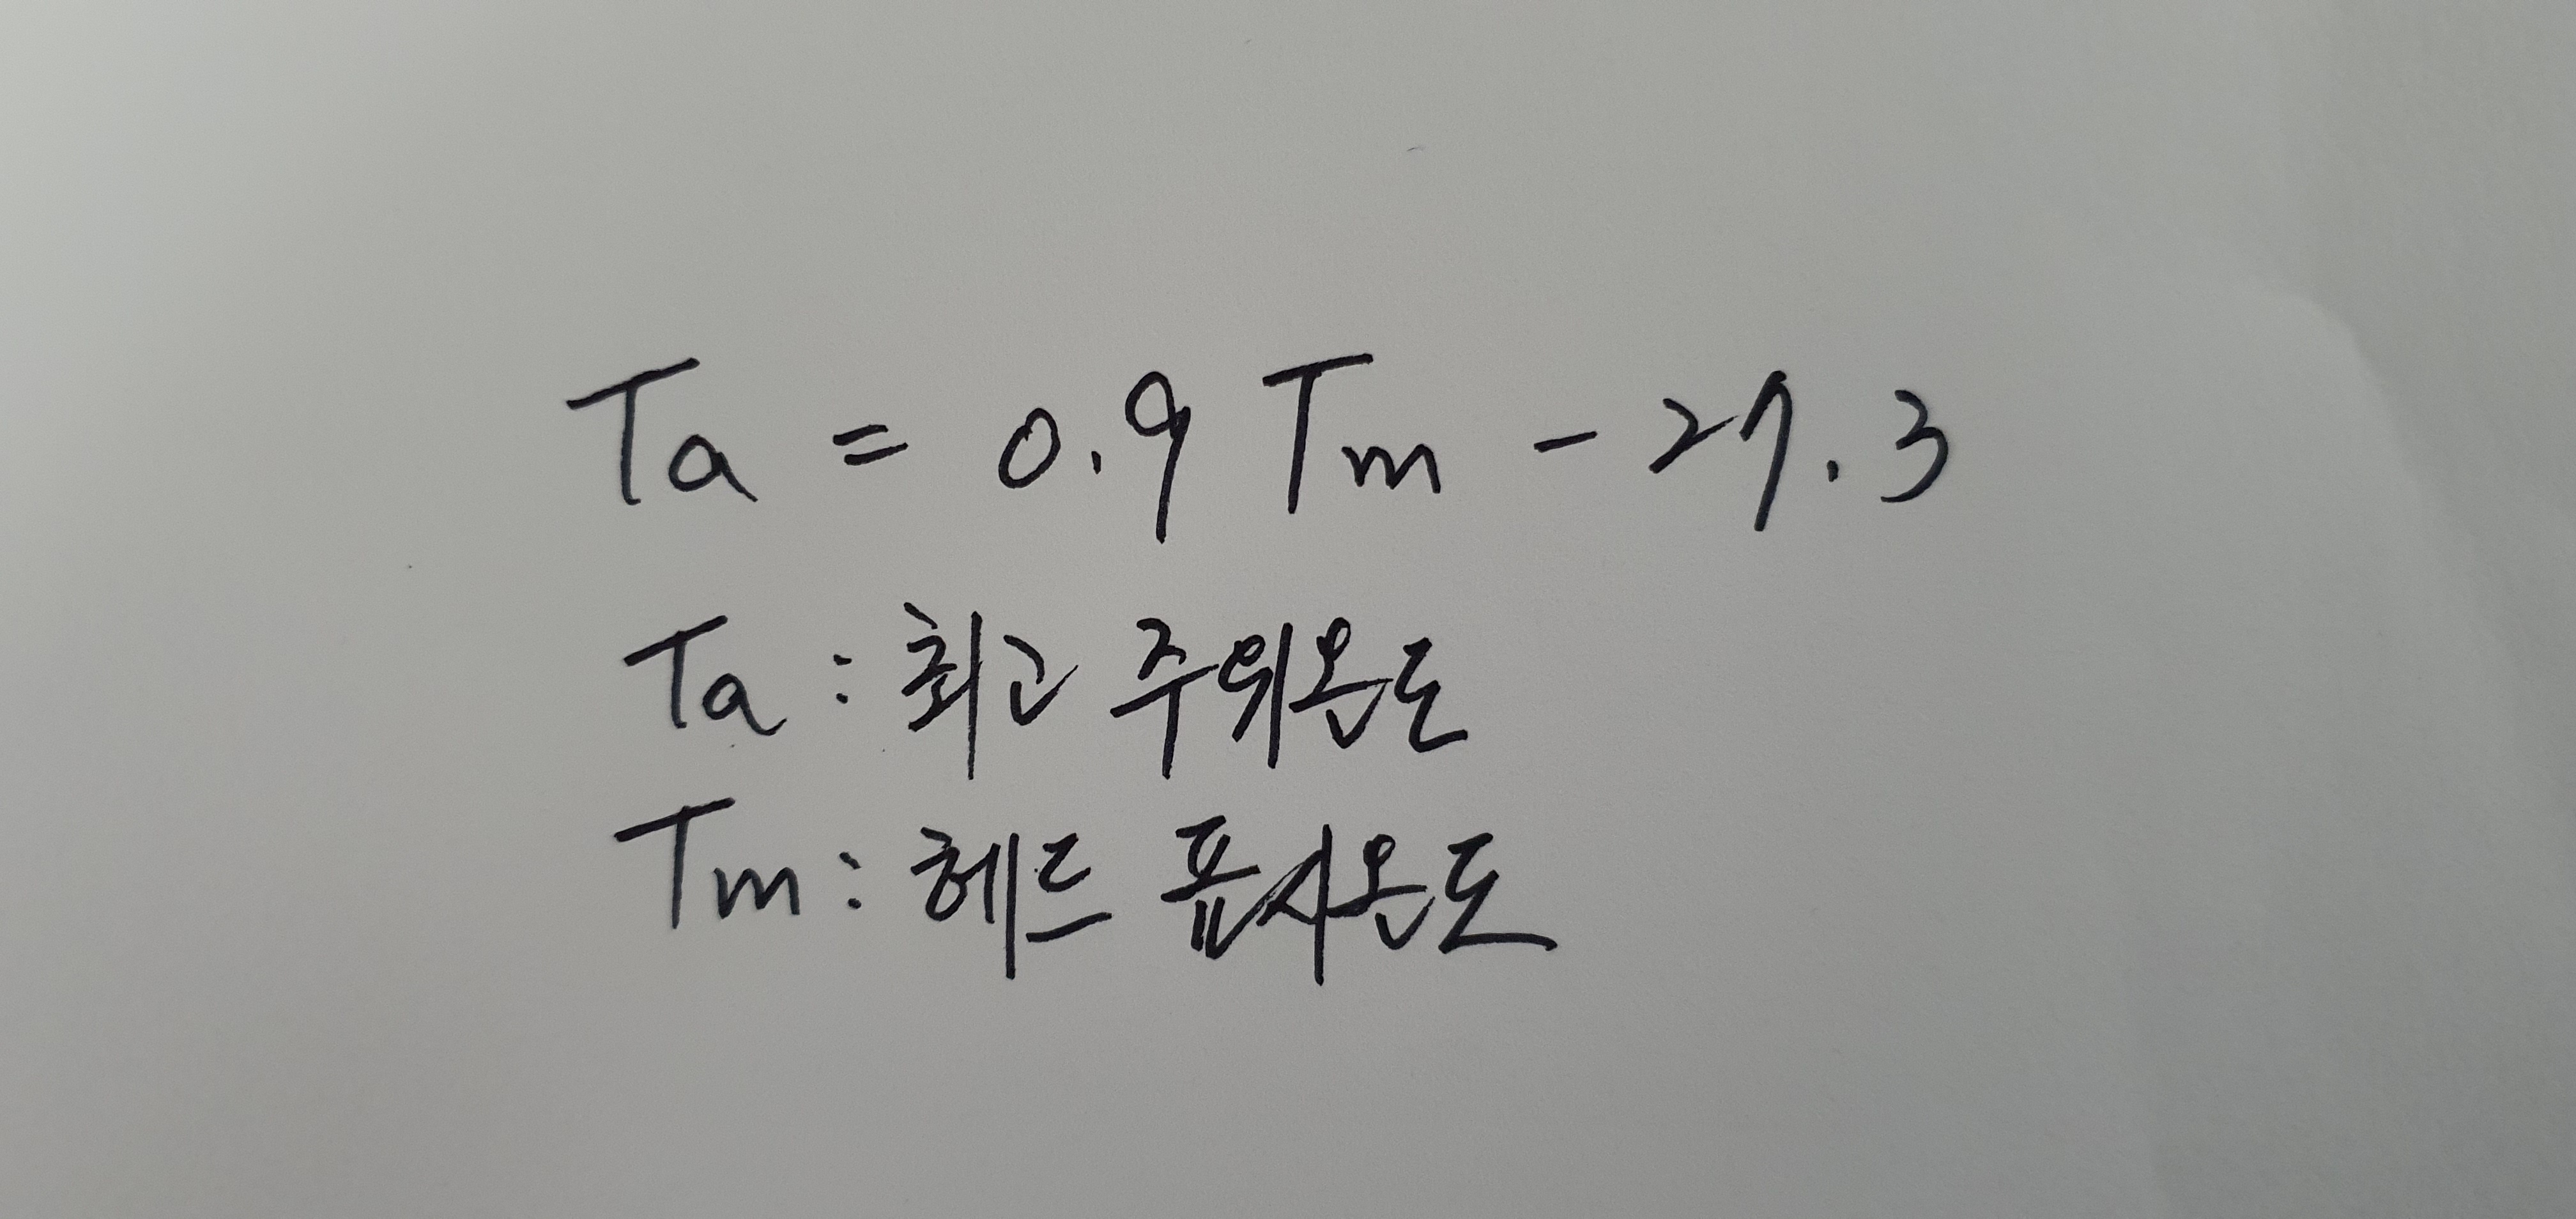 Ta = 0.9 Tm - 27.3
Ta : 최고 주위온도
Tm : 헤드 표시온도